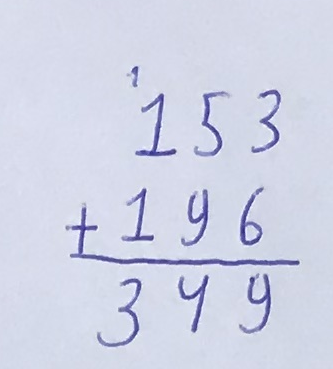 1
153
+ 196
349